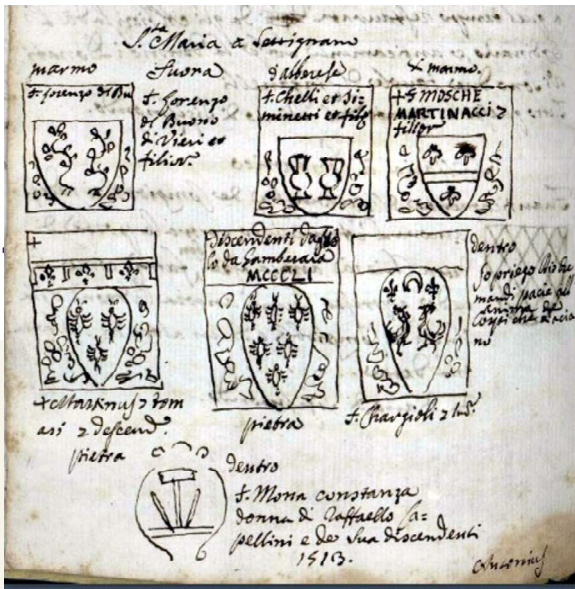 S.ta Maria a Settignano
marmo
Suona
d'alberese
di marmo
S. Lorenzo di Bu
S. Lorenzo
di Buono
di Vieri et
filior.
S. Chelli et Si-
minetti et filg
+ S MOSCHE
MARTINACCI 2
filior
+
discendenti da
lo da Gamberaia
MCCCLI
dentro
Io priego Iddio che
mandi pacie all
anima de
corpi che
no
+ Martinus 2 tom
asi 2 descend.
pietra
pietra
S. Chargioli 2
dentro
S. Mona constanza
donna di Raffaello Ca=
pellini e de sua discendenti
1513.